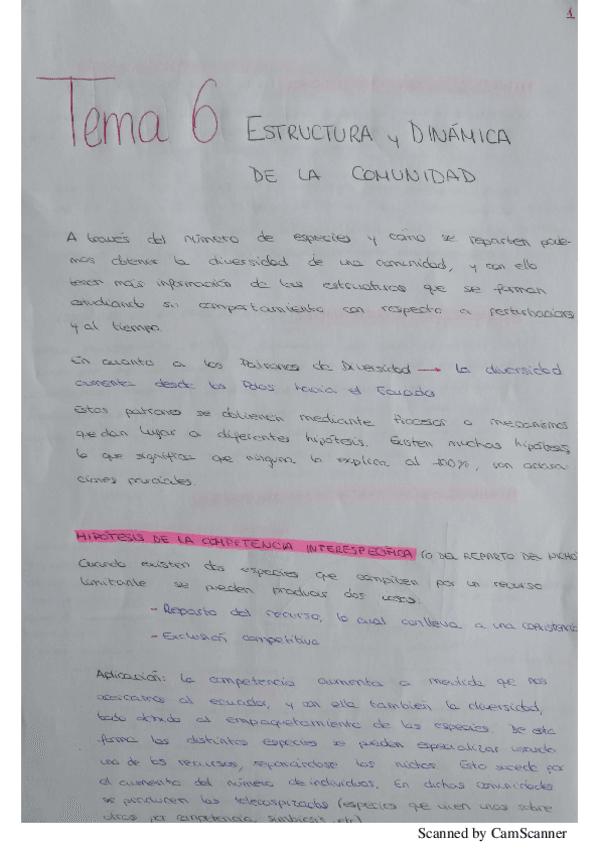 1
Tema 6 ESTRUCTURA y DINÁMICA
DE LA COMUNIDAD
A través del número de especies y cómo se reparten pode-
mos obtener la diversidad de una comunidad, y con ello
tener más información de las estructuras que se forman
estudiando su comportamiento con respecto a perturbaciones
y al tiempo.
En cuanto a los Patrones de Diversidad → la diversidad
aumenta desde los Polos hacia el Ecuador
Estos patrones se obtienen mediante Procesos o mecanismos
que dan lugar a diferentes hipótesis. Existen muchas hipótesis,
lo que significa que ninguna lo explica al 100%, son
ciones parciales.
HIPÓTESIS DE LA COMPETENCIA INTERESPECÍFICA (O DEL REPARTO DEL NICHO
Cuando existen dos especies que compiten por un recurso
limitante se pueden producir dos cosas:
- Reparto del recurso, lo cual conlleva a una coexistencia
- Exclusión competitiva
Aplicación: la competencia aumenta a medida que nos
acercamos al ecuador, y con ella también la diversidad,
todo debido al empaquetamiento de las especies. De esta
forma las distintas especies se pueden especializar usando
uno de los recursos, separándose los nichos. Esto sucede por
el aumento del número de individuos. En dichas comunidades
se producen las (especies que viven unas sobre
otras por competencia, simbiosis, etc)
Scanned by CamScanner